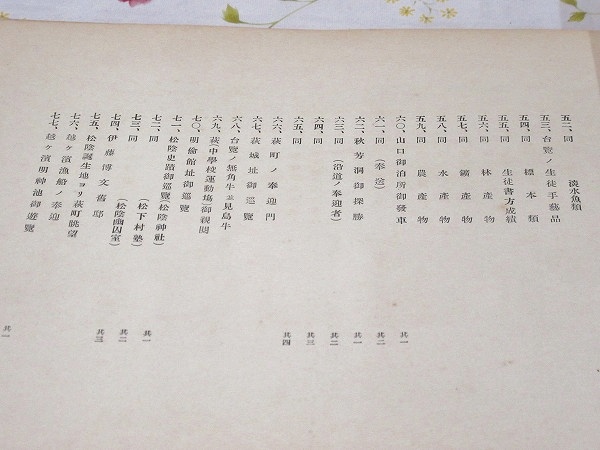 五二、同　淡水魚類
五三、台覽ノ生徒手藝品
五四、同　標本類
五五、同　生徒書方成績
五六、同　林產物
五七、同　鑛產物
五八、同　水產物
五九、同　農產物
六〇、山口御泊所御發車　其一
六一、同　（奉送）　其二
六二、秋芳洞御探勝　其一
六三、同　（沿道ノ奉迎者）　其二
六四、同　其三
六五、同　其四
六六、萩町ノ奉迎門
六七、萩城址御巡覽
六八、台覽ノ無角牛並見島牛
六九、萩中學校運動場御親閱
七〇、明倫館址御巡覽
七一、松陰史蹟御巡覽（松陰神社）　其一
七二、同　（松下村塾）　其二
七三、同　（松陰幽囚室）　其三
七四、伊藤博文舊邸
七五、松陰誕生地ヨリ萩町眺望
七六、越ヶ濱漁船ノ奉迎
七七、越ヶ濱明神池御遊覽　其一